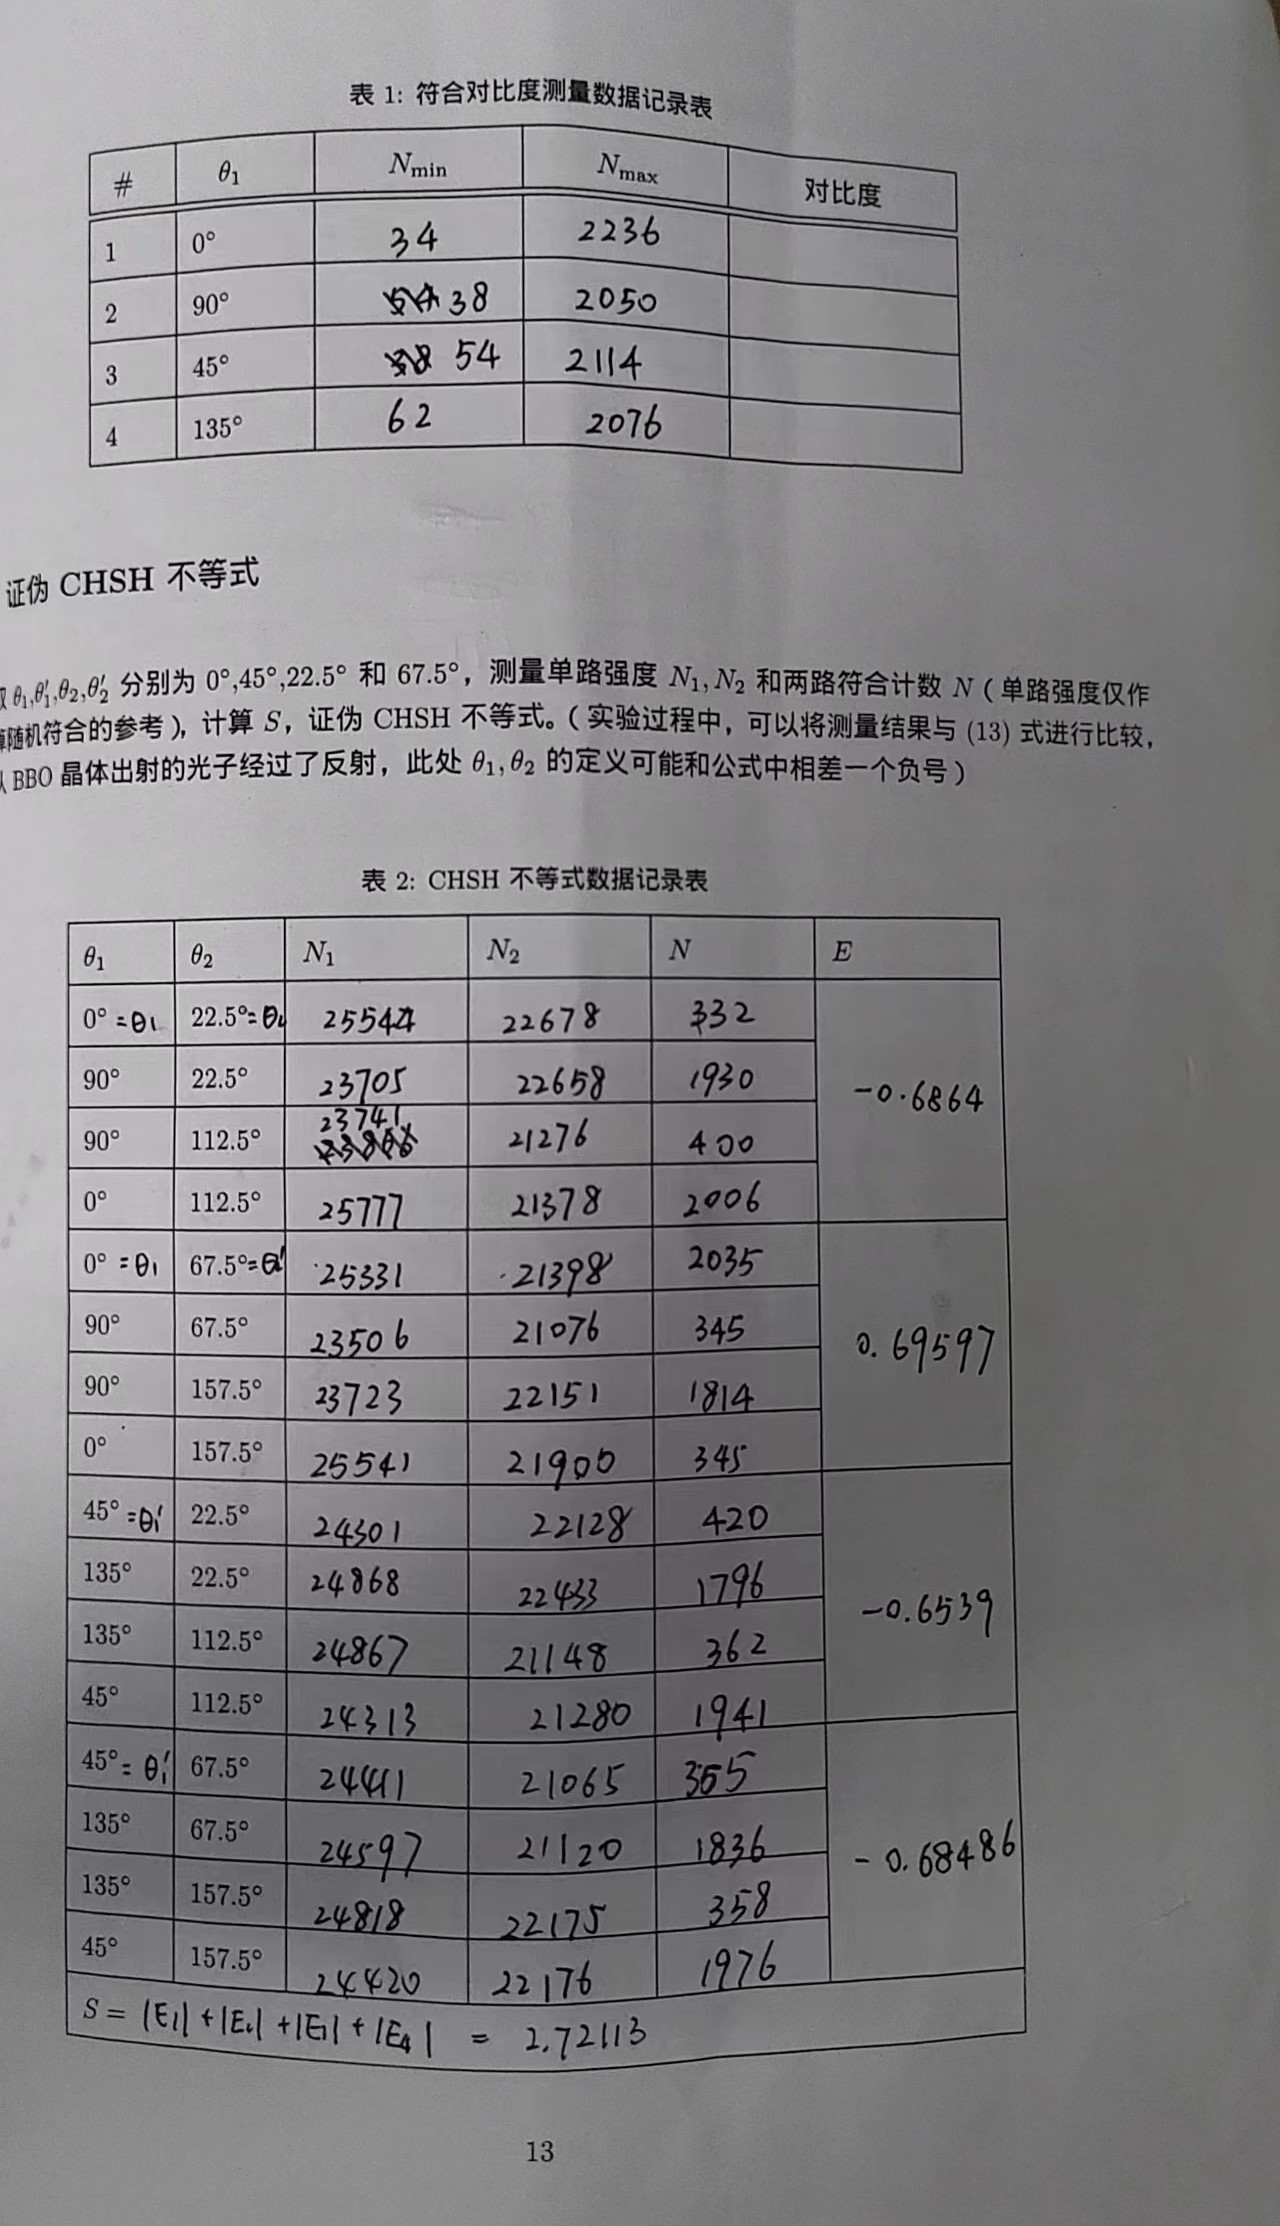 表 1: 符合对比度测量数据记录表
# θ₁ Nmin Nmax 对比度
1 0° 34 2236
2 90° 38 2050
3 45° 54 2114
4 135° 62 2076
证伪 CHSH 不等式
θ₁,θ₁′,θ₂,θ₂′ 分别为 0°,45°,22.5° 和 67.5°，测量单路强度 N₁, N₂ 和两路符合计数 N（单路强度仅作
随机符合的参考），计算 S，证伪 CHSH 不等式。（实验过程中，可以将测量结果与 (13) 式进行比较，
BBO 晶体出射的光子经过了反射，此处 θ₁, θ₂ 的定义可能和公式中相差一个负号）
表 2: CHSH 不等式数据记录表
θ₁ θ₂ N₁ N₂ N E
0° =θ₁ 22.5°=θ₂ 25544 22678 332
90° 22.5° 23705 22658 1930 -0.6864
90° 112.5° 23741 21276 400
0° 112.5° 25777 21378 2006
0° =θ₁ 67.5°=θ₂′ 25331 21398 2035
90° 67.5° 23506 21076 345 0.69597
90° 157.5° 23723 22151 1814
0° 157.5° 25541 21900 345
45° =θ₁′ 22.5° 24301 22128 420
135° 22.5° 24868 22433 1796 -0.6539
135° 112.5° 24867 21148 362
45° 112.5° 24313 21280 1941
45° = θ₁′ 67.5° 24411 21065 355
135° 67.5° 24597 21120 1836 -0.68486
135° 157.5° 24818 22175 358
45° 157.5° 24420 22176 1976
S = |E₁| + |E₂| + |E₃| + |E₄| = 2.72113
13